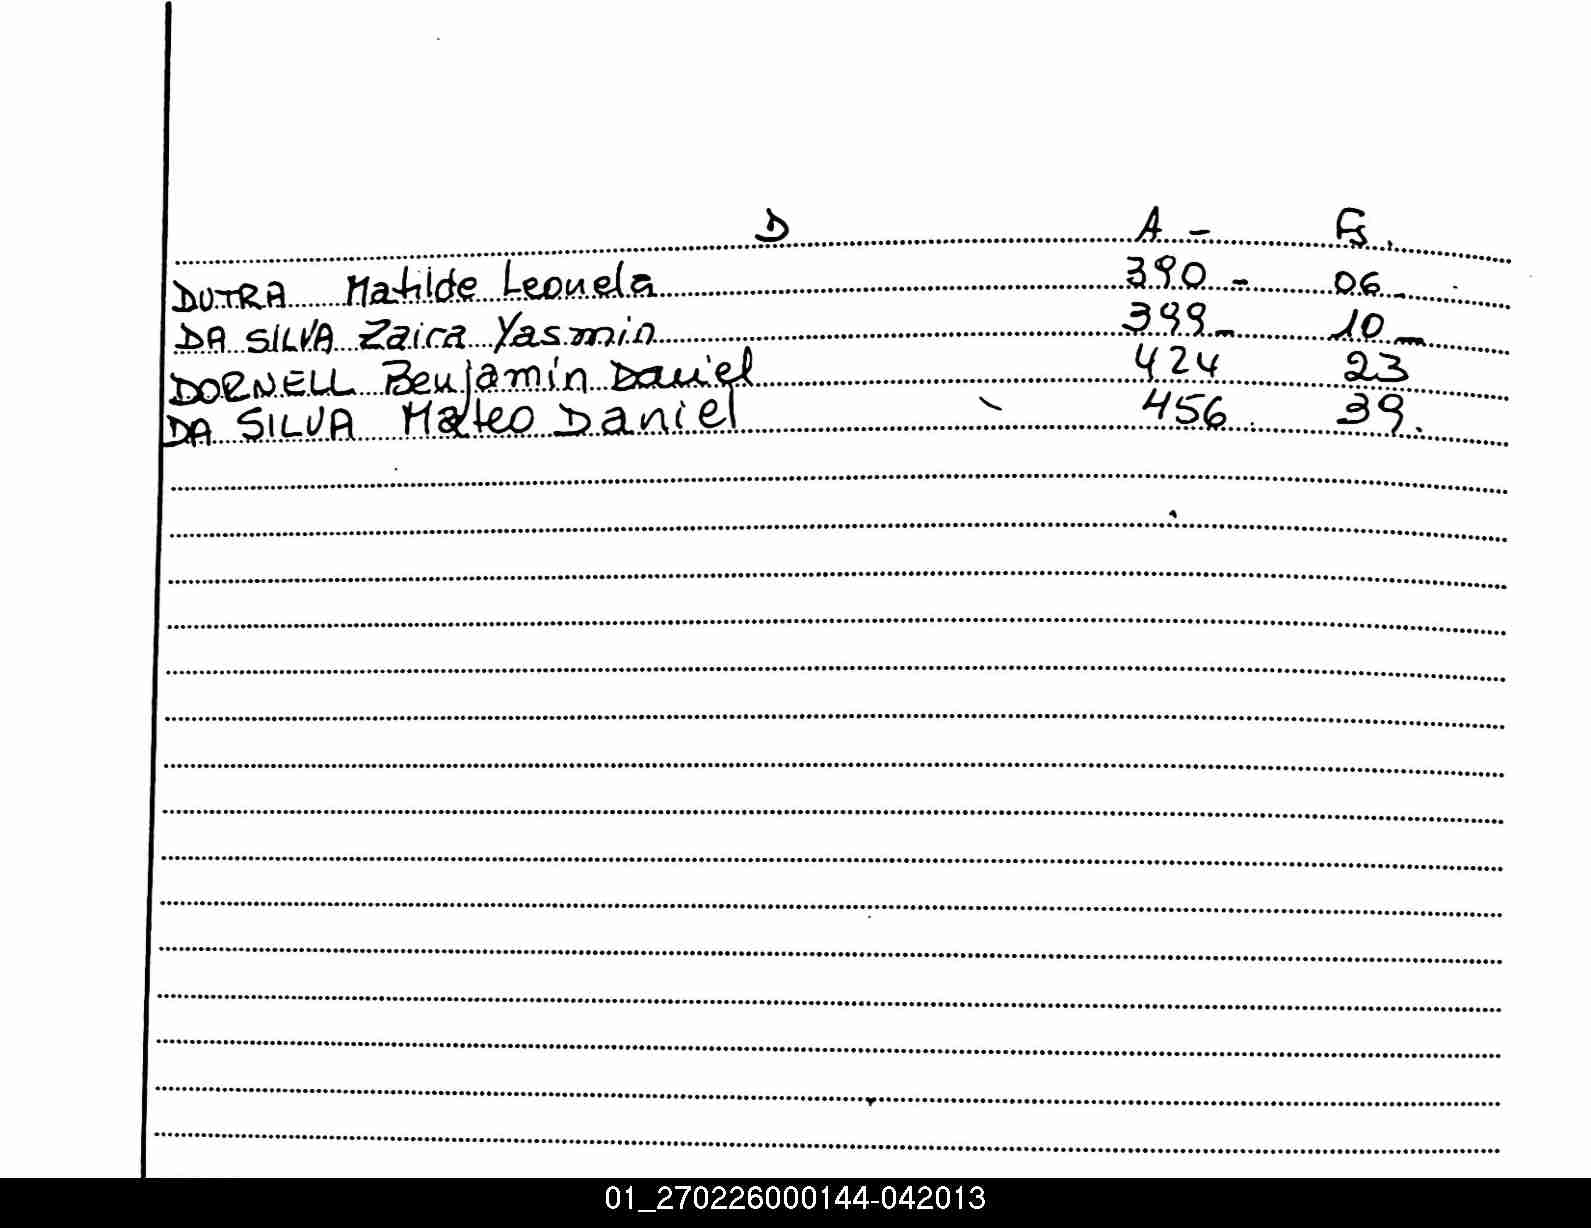 D A - Fs.
DUTRA Matilde Leonela 390 - 06 -
DA SILVA Zaira Yasmin 399 - 10 -
DORNELL Benjamin Daniel 424 23
DA SILVA Mateo Daniel 456 . 39.
01_270226000144-042013